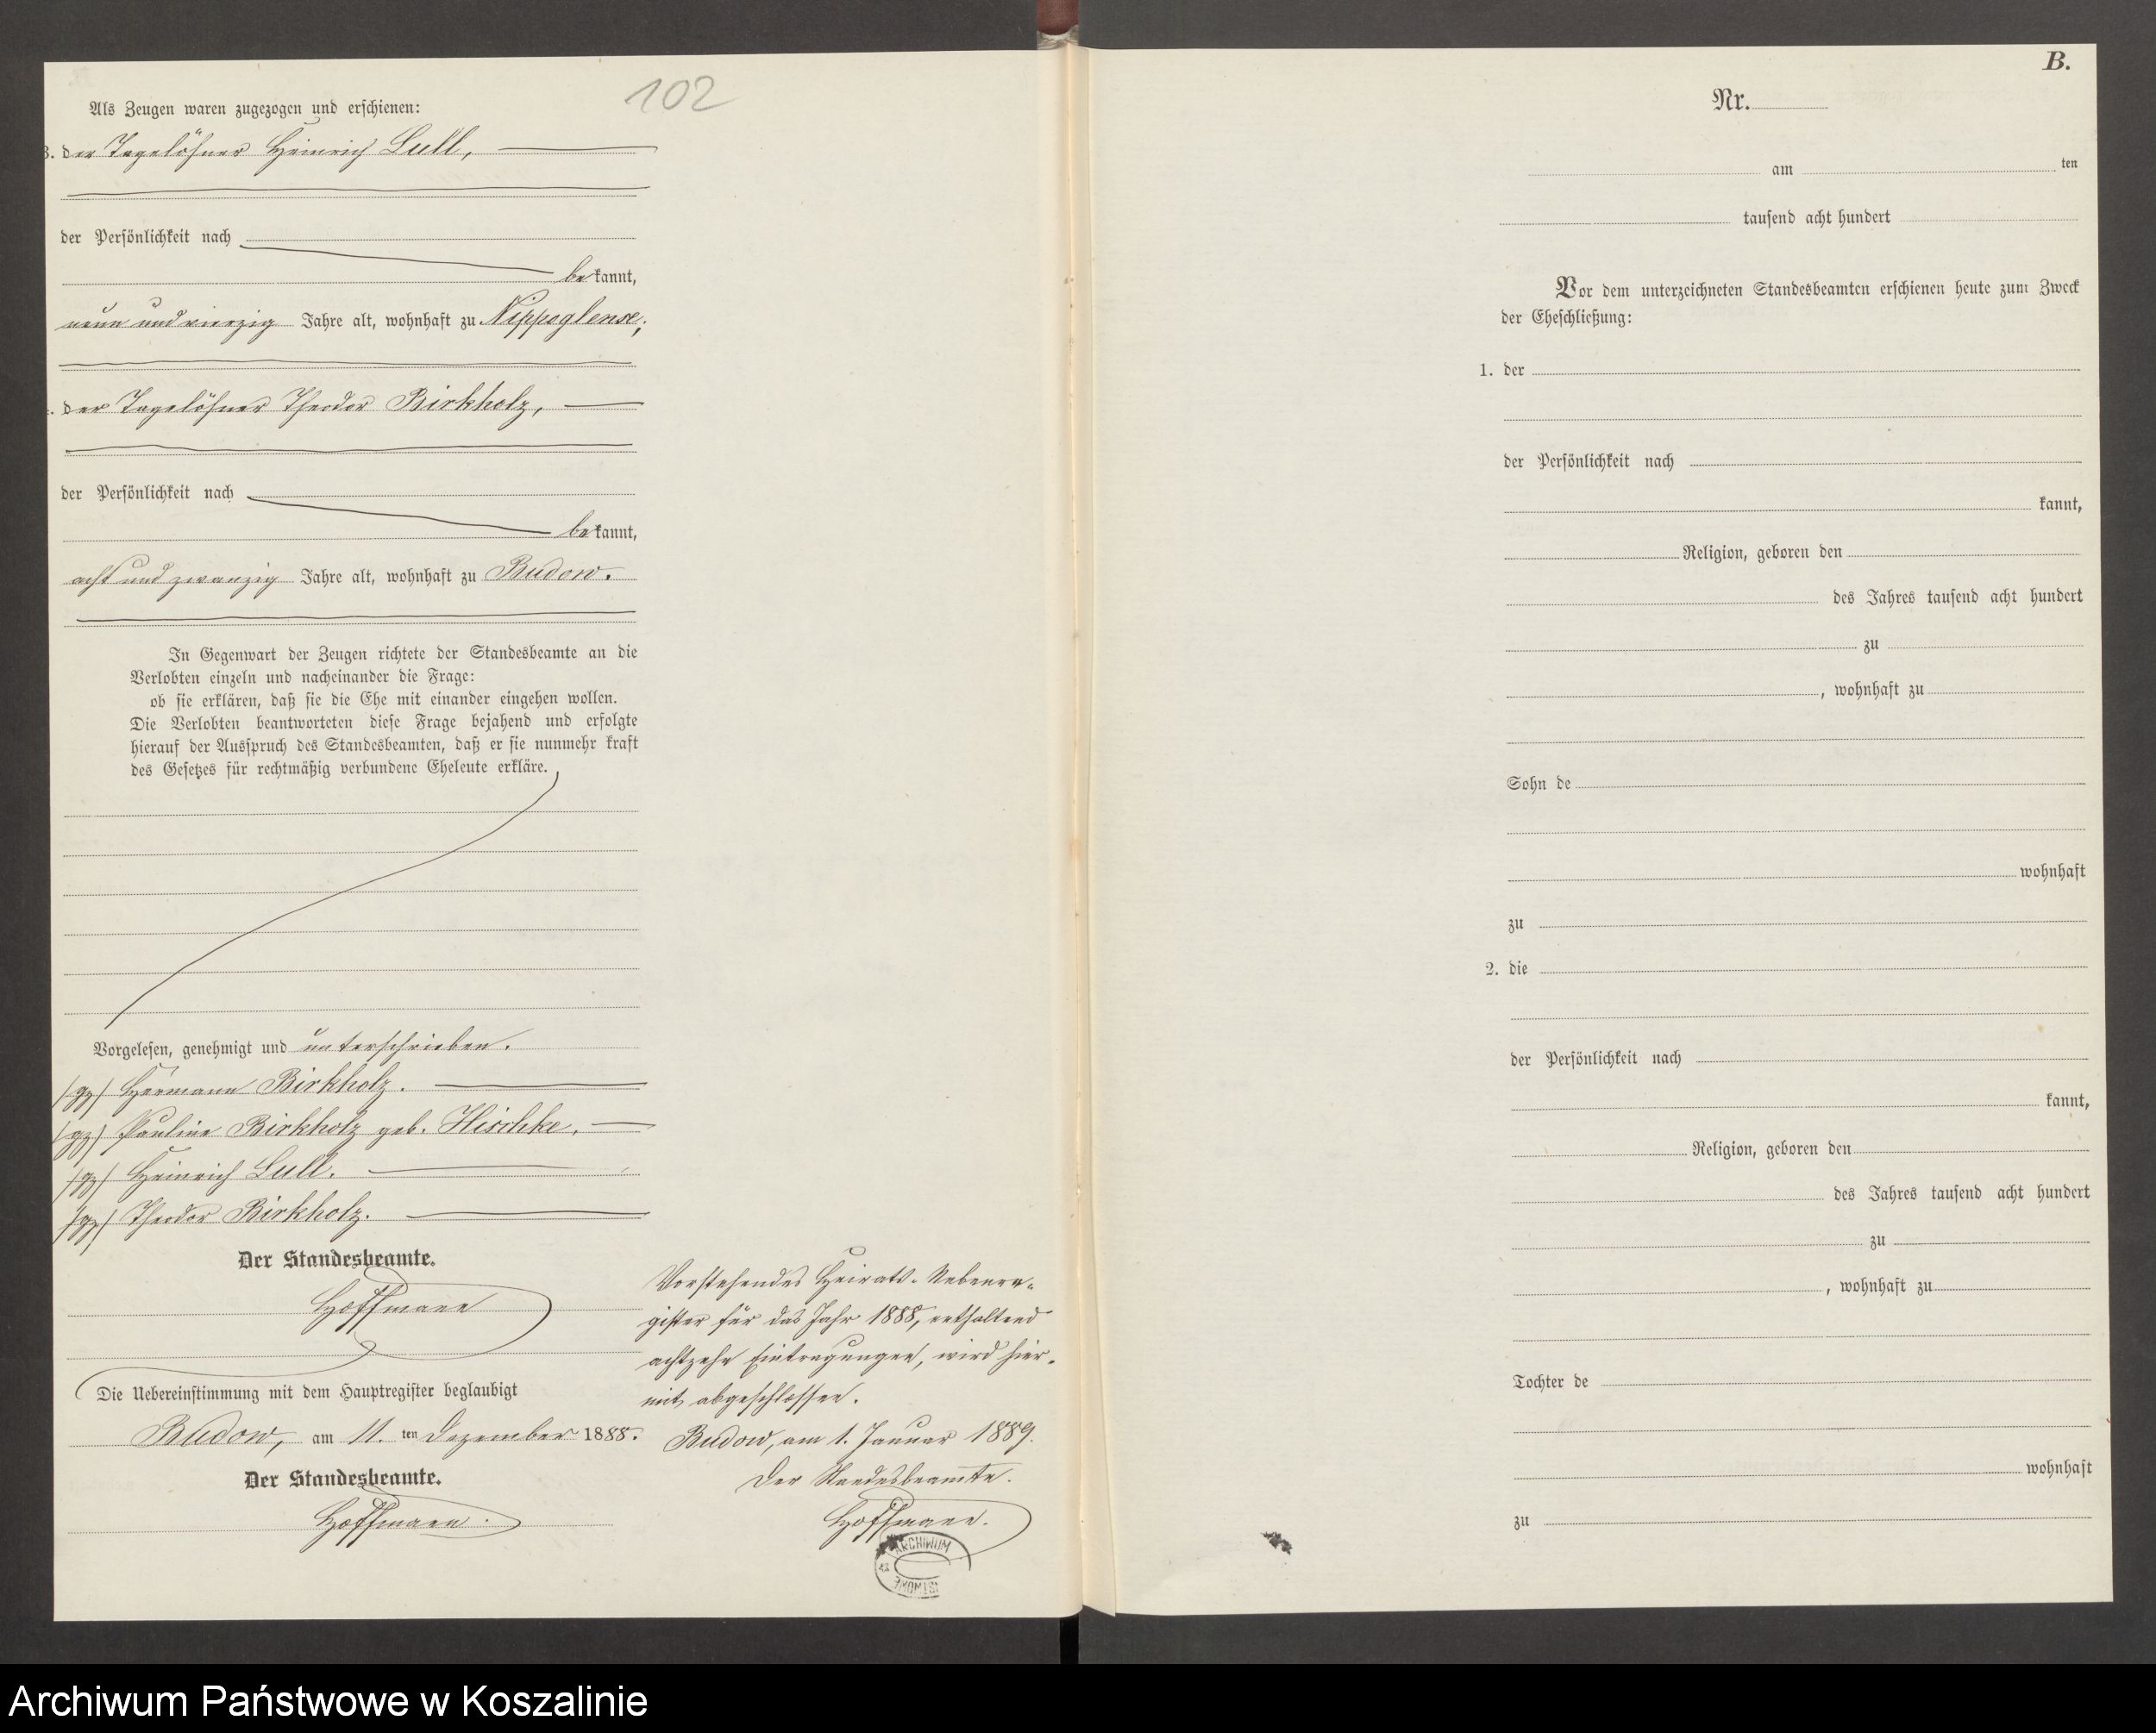 102
Als Zeugen waren zugezogen und erschienen:
3. der Tagelöhner Heinrich Lull,
der Persönlichkeit nach
bekannt,
neun und vierzig Jahre alt, wohnhaft zu Nippoglense;
der Tagelöhner Theodor Birkholz,
der Persönlichkeit nach
bekannt,
acht und zwanzig Jahre alt, wohnhaft zu Budow.
In Gegenwart der Zeugen richtete der Standesbeamte an die
Verlobten einzeln und nacheinander die Frage:
ob sie erklären, daß sie die Ehe mit einander eingehen wollen.
Die Verlobten beantworteten diese Frage bejahend und erfolgte
hierauf der Ausspruch des Standesbeamten, daß er sie nunmehr kraft
des Gesetzes für rechtmäßig verbundene Eheleute erkläre.
Vorgelesen, genehmigt und unterschrieben.
/gz/ Hermann Birkholz.
/gz/ Pauline Birkholz geb. Hischke.
/gz/ Heinrich Lull.
/gz/ Theodor Birkholz.
Der Standesbeamte.
Hoffmann
Die Uebereinstimmung mit dem Hauptregister beglaubigt
Budow, am 11. ten Dezember 1888.
Der Standesbeamte.
Hoffmann.
Vorstehendes Heirats-Nebenre-
gister für das Jahr 1888, enthaltend
achtzehn Eintragungen, wird hier-
mit abgeschlossen.
Budow, am 1. Januar 1889.
Der Standesbeamte.
Hoffmann.
ARCHIWUM
B.
Nr.
am ten
tausend acht hundert
Vor dem unterzeichneten Standesbeamten erschienen heute zum Zweck
der Eheschließung:
1. der
der Persönlichkeit nach
kannt,
Religion, geboren den
des Jahres tausend acht hundert
zu
, wohnhaft zu
Sohn de
wohnhaft
zu
2. die
der Persönlichkeit nach
kannt,
Religion, geboren den
des Jahres tausend acht hundert
zu
, wohnhaft zu
Tochter de
wohnhaft
zu
Archiwum Państwowe w Koszalinie